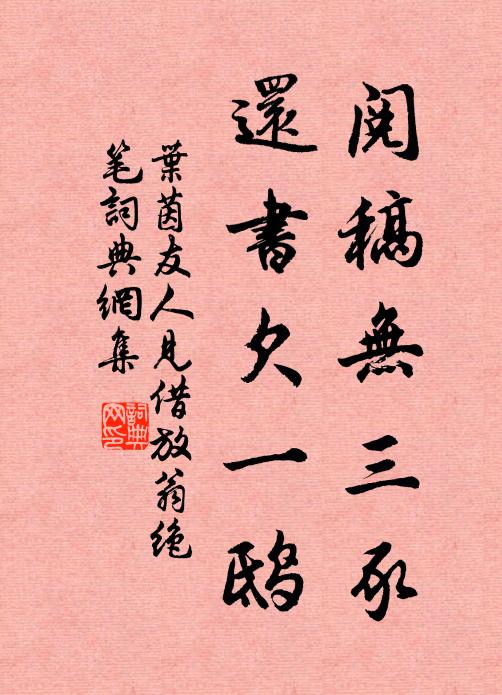 閱稿無三豕
還書欠一鴟
葉茵友人見借放翁絶
笔詞典網集
詞典网印